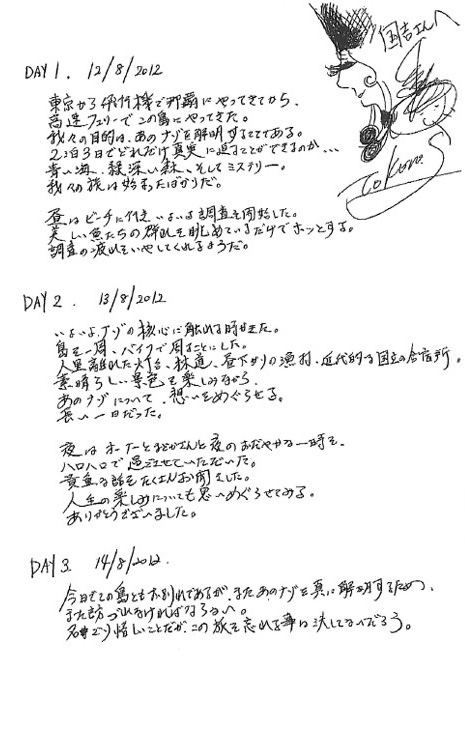 国吉さんへ
Tokoro.S
DAY 1. 12/8/2012
東京から飛行機で那覇にやってきてから、
高速フェリーでこの島にやってきた。
我々の目的は、あのナゾを解明することである。
2泊3日でどれだけ真実に迫ることができるのか...
青い海、緑深い森、そしてミステリー。
我々の旅は始まったばかりだ。
昼はビーチに行き、いよいよ調査を開始した。
美しい魚たちの群れを眺めているだけでホッとする。
調査の疲れをいやしてくれるようだ。
DAY 2. 13/8/2012
いよいよナゾの核心に触れる時がきた。
島を一周、バイクで周ることにした。
人里離れた灯台、林道、昼下がりの漁村、近代的な国立の合宿所。
素晴らしい景色を楽しみながら、
あのナゾについて、想いをめぐらせる。
長い一日だった。
夜はオーナーとまどかさんと夜のおだやかな一時を、
ハロハロで過ごさせていただいた。
貴重な話をたくさんお聞きした。
人生の楽しみについても思いめぐらせてみる。
ありがとうございました。
DAY 3. 14/8/2012.
今日でこの島ともお別れであるが、またあのナゾを真に解明するため、
また訪づれなければならない。
名ごり惜しいことだが、この旅を忘れる事は決してないだろう。